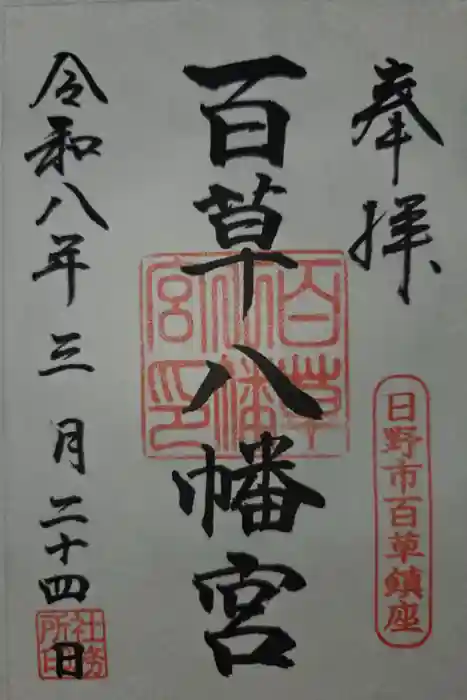 奉拝
日野市百草鎮座
百草八幡宮
百草八幡宮印
令和八年三月二十四日
社務所印